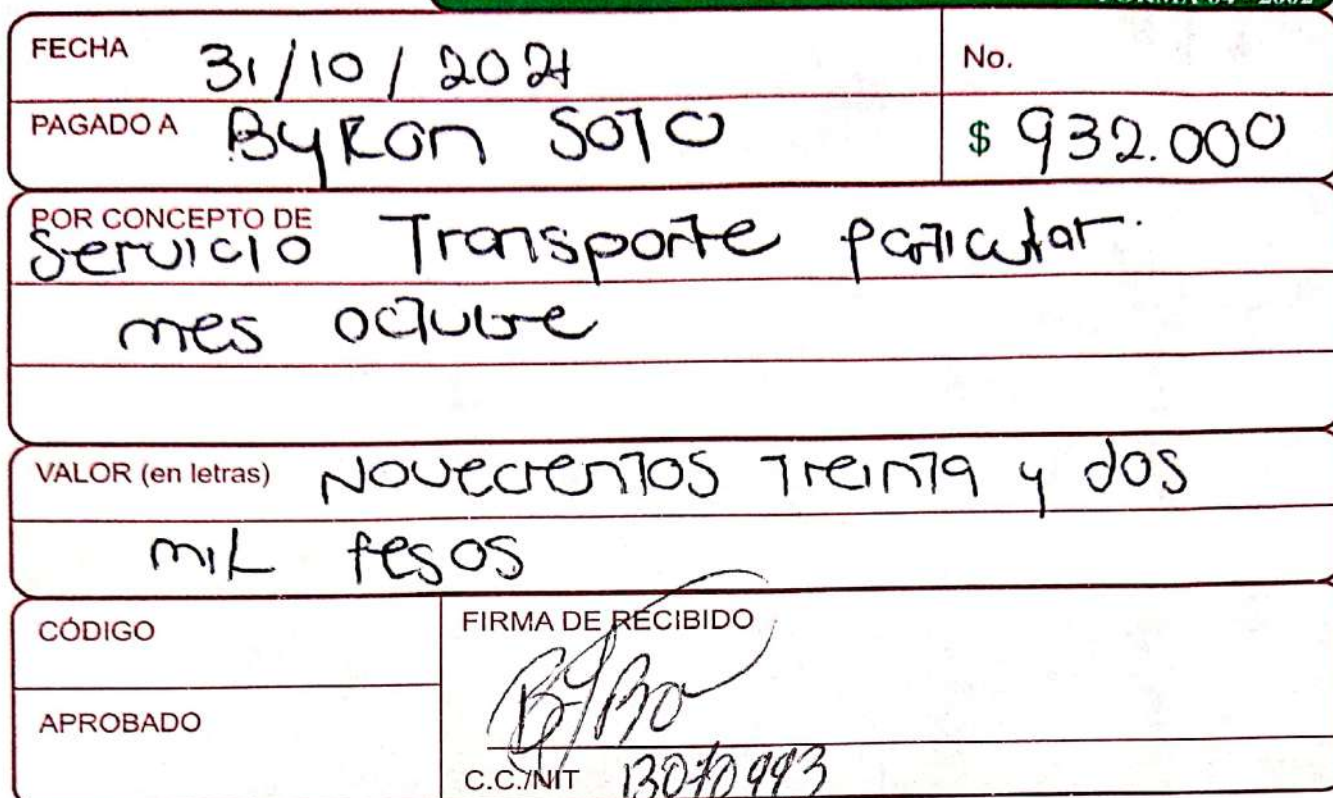 FECHA 31/10/2021 No.
PAGADO A Byron Soto $ 932.000
POR CONCEPTO DE
Servicio Transporte particular.
mes octubre
VALOR (en letras) Novecientos Treinta y dos
mil pesos
CÓDIGO FIRMA DE RECIBIDO
APROBADO
C.C./NIT